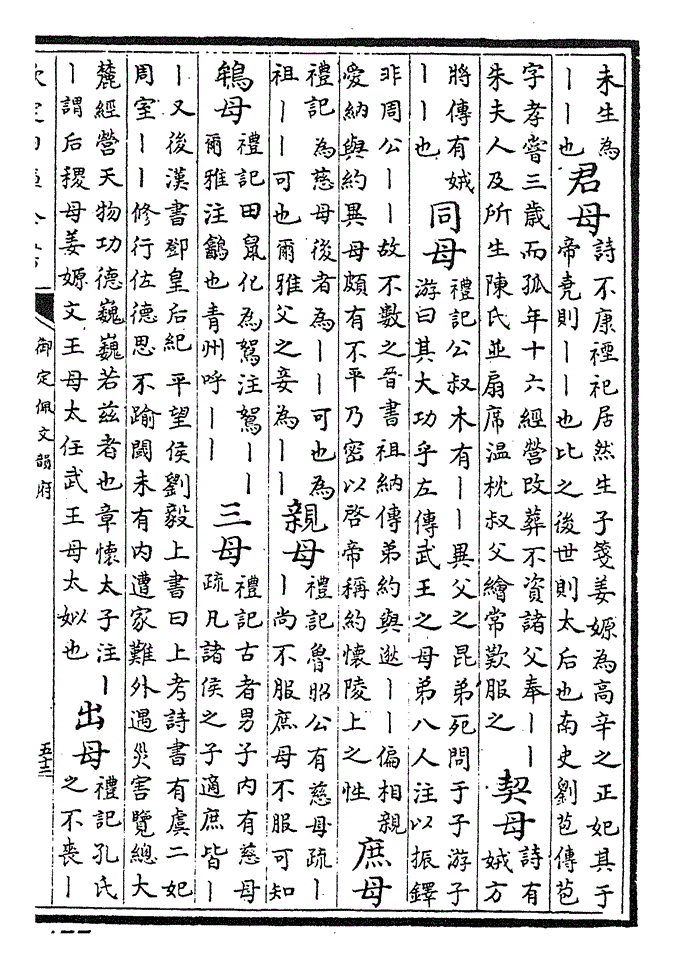 未生為
丨丨也
君母
詩不康禋祀居然生子箋姜嫄為高辛之正妃其于
帝堯則丨丨也比之後世則太后也南史劉苞傳苞
字孝嘗三歳而孤年十六經營改葬不資諸父奉丨丨
朱夫人及所生陳氏並扇席温枕叔父繪常歎服之
契母
詩有
娀方
將傳有娀
丨丨也
同母
禮記公叔木有丨丨異父之昆弟死問于子游子
游曰其大功乎左傳武王之母弟八人注以振鐸
非周公丨丨故不數之晉書祖納傳弟約與逖丨丨偏相親
愛納與約異母頗有不平乃密以啓帝稱約懷陵上之性
庶母
禮記為慈母後者為丨丨可也為
祖丨丨可也爾雅父之妾為丨丨
親母
禮記魯昭公有慈母疏丨
丨尚不服庶母不服可知
鴾母
禮記田鼠化為鴽注鴽丨丨
爾雅注鶕也青州呼丨丨
三母
禮記古者男子内有慈母
疏凡諸侯之子適庶皆丨
丨又後漢書鄧皇后紀平望侯劉毅上書曰上考詩書有虞二妃
周室丨丨修行佐德思不踰閾未有内遭家難外遇災害覽總大
麓經營天物功德巍巍若兹者也章懷太子注丨
丨謂后稷母姜嫄文王母太任武王母太姒也
出母
禮記孔氏
之不喪丨
御定佩文韻府
五十三